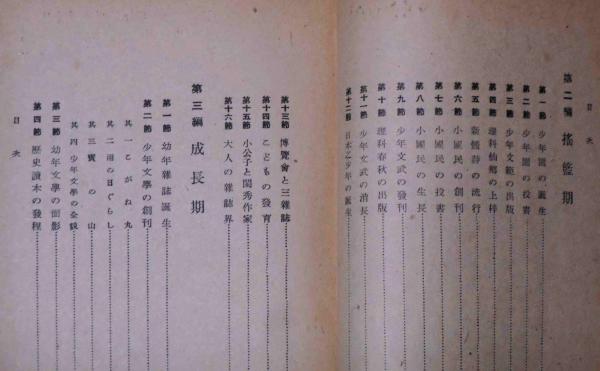 目次
第二編 搖籃期
第一節 少年園の誕生
第二節 少年園の投書
第三節 少年文範の出版
第四節 理科仙鄕の上梓
第五節 新體詩の流行
第六節 小國民の創刊
第七節 小國民の投書
第八節 小國民の生長
第九節 少年文武の發刊
第十節 理科春秋の出版
第十一節 少年文武の消長
第十二節 日本之少年の誕生
第十三節 博覽會と三雜誌
第十四節 こどもの發育
第十五節 小公子と閨秀作家
第十六節 大人の雜誌界
第三編 成長期
第一節 幼年雜誌誕生
第二節 少年文學の創刊
其一 こがね丸
其二 雨の日ぐらし
其三 寶の山
其四 少年文學の全貌
第三節 幼年文學の面影
第四節 歷史讀本の發程
目次